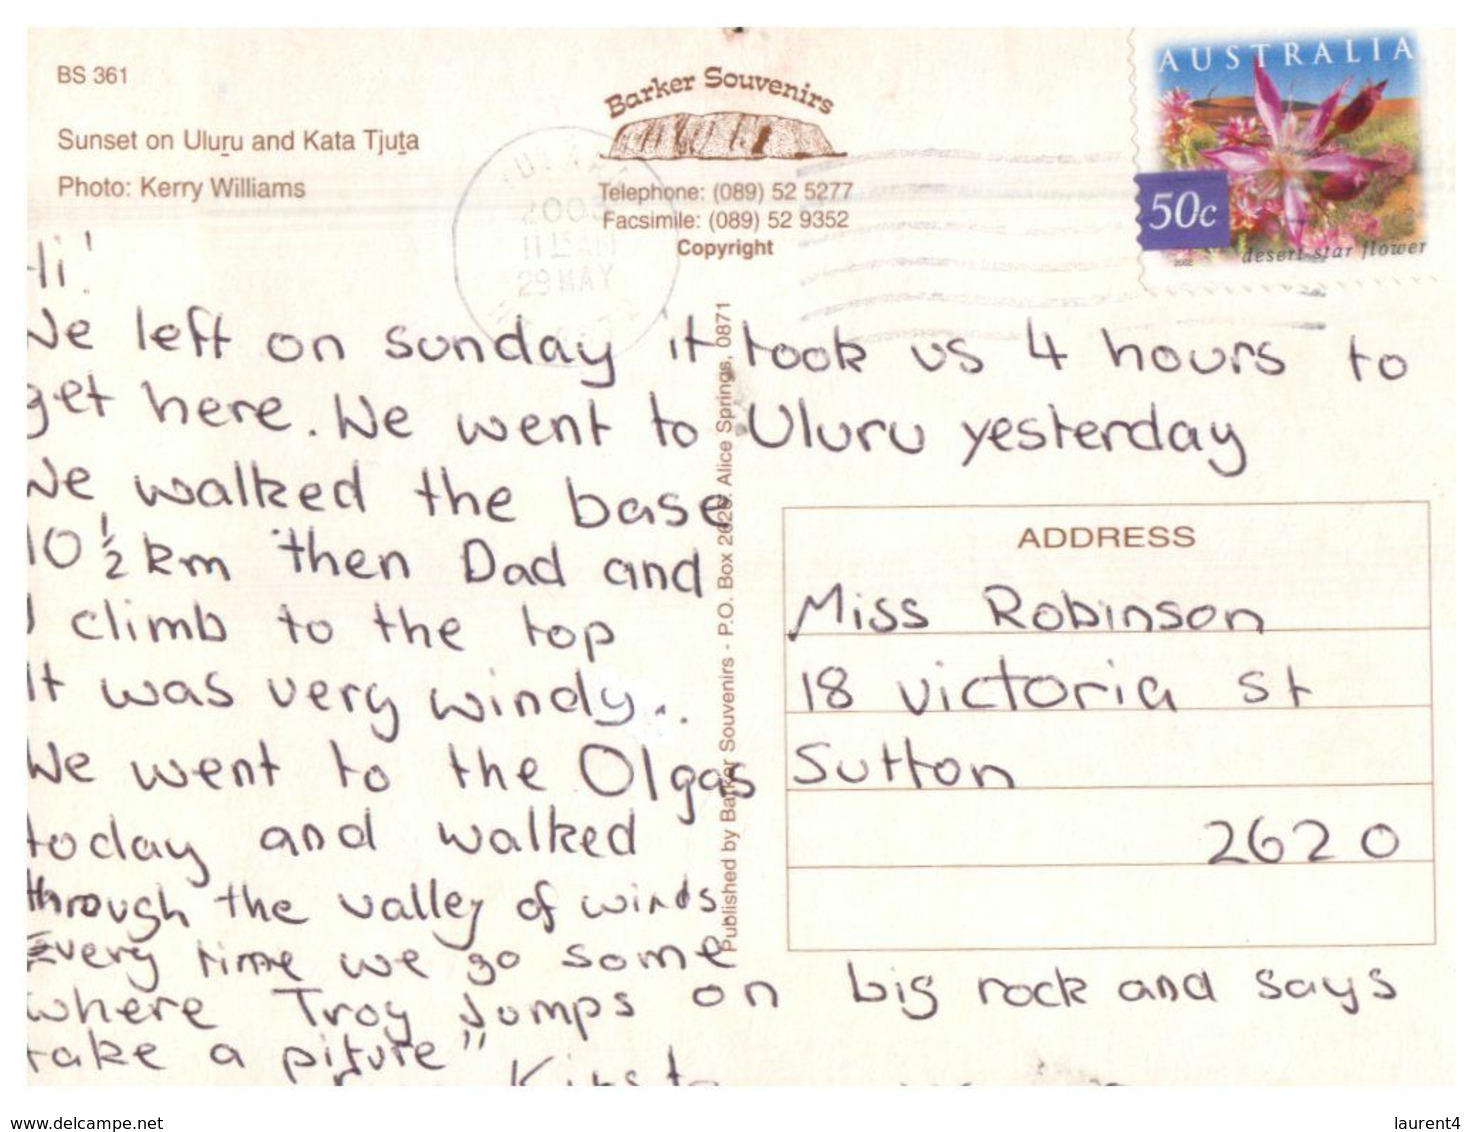 BS 361
Sunset on Uluru and Kata Tjuta
Photo: Kerry Williams
Barker Souvenirs
Telephone: (089) 52 5277
Facsimile: (089) 52 9352
Copyright
AUSTRALIA
50c
2002
desert star flower
1115AM
29 MAY
Hi!
We left on sunday it took us 4 hours to
get here. We went to Uluru yesterday
We walked the base
10 ½ km then Dad and
I climb to the top
It was very windy..
We went to the Olgas
today and walked
through the valley of winds
Every time we go some
where Troy Jumps on big rock and says
take a pifure"
Published by Barker Souvenirs - P.O. Box Alice Springs, 0871
ADDRESS
Miss Robinson
18 victoria st
Sutton
2620
www.delcampe.net
laurent4